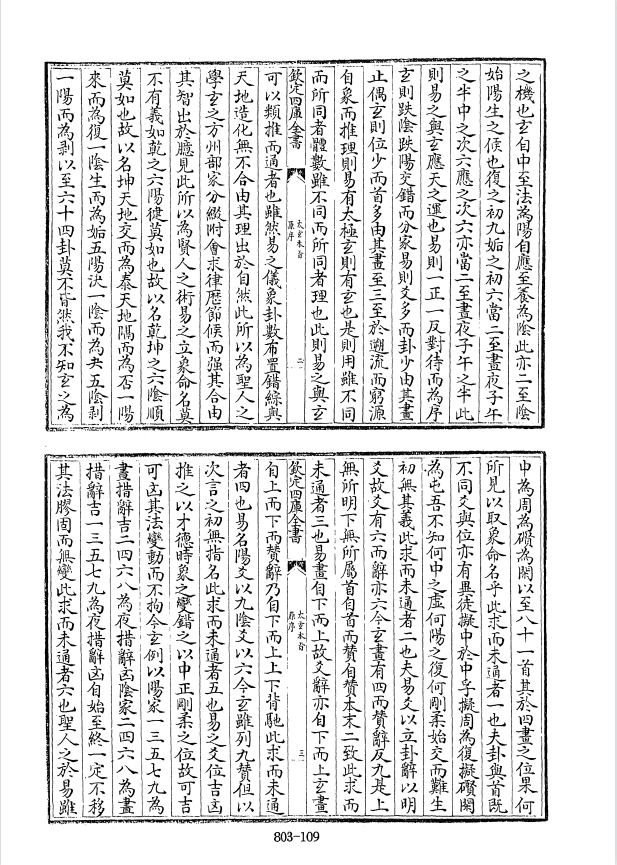 之機也玄自中至法為陽自應至養為陰此亦二至陰
始陽生之候也復之初九姤之初六當二至晝夜子午
之半中之次六應之次六亦當二至晝夜子午之半此
則易之與玄應天之運也易則一正一反對待而為序
玄則跌陰跌陽交錯而分家易則爻多而卦少由其畫
止偶玄則位少而首多由其畫至三至於遡流而窮源
自象而推理則易有太極玄則有玄也是則用雖不同
而所同者體數雖不同而所同者理也此則易之與玄
欽定四庫全書
太玄本旨
原序
二
可以類推而通者也雖然易之儀象卦數布置錯綜與
天地造化無不合由其理出於自然此所以為聖人之
學玄之方州部家分綴附會求律歴節候而强其合由
其智出於臆見此所以為賢人之術易之立象命名莫
不有義如乾之六陽徤莫如也故以名乾坤之六陰順
莫如也故以名坤天地交而為泰天地隔而為否一陽
來而為復一陰生而為姤五陽決一陰而為夬五陰剥
一陽而為剥以至六十四卦莫不皆然我不知玄之為
中為周為礥為閑以至八十一首其於四畫之位果何
所見以取象命名乎此求而未通者一也夫卦與首既
不同爻與位亦有異徒擬中於中孚擬周為復擬礥閑
為屯吾不知何中之虚何陽之復何剛柔始交而難生
初無其義此求而未通者二也夫易爻以立卦辭以明
爻故爻有六而辭亦六今玄畫有四而贊辭反九是上
無所明下無所屬首自首而贊自贊本末二致此求而
未通者三也易畫自下而上故爻辭亦自下而上玄畫
欽定四庫全書
太玄本旨
原序
三
自上而下而贊辭乃自下而上上下背馳此求而未通
者四也易名陽爻以九陰爻以六今玄雖列九贊但以
次言之初無指名此求而未通者五也易之爻位吉凶
推之以才德時象之變錯之以中正剛柔之位故可吉
可凶其法變動而不拘今玄例以陽家一三五七九為
晝措辭吉二四六八為夜措辭凶陰家二四六八為晝
措辭吉一三五七九為夜措辭凶自始至終一定不移
其法膠固而無變此求而未通者六也聖人之於易雖
803-109